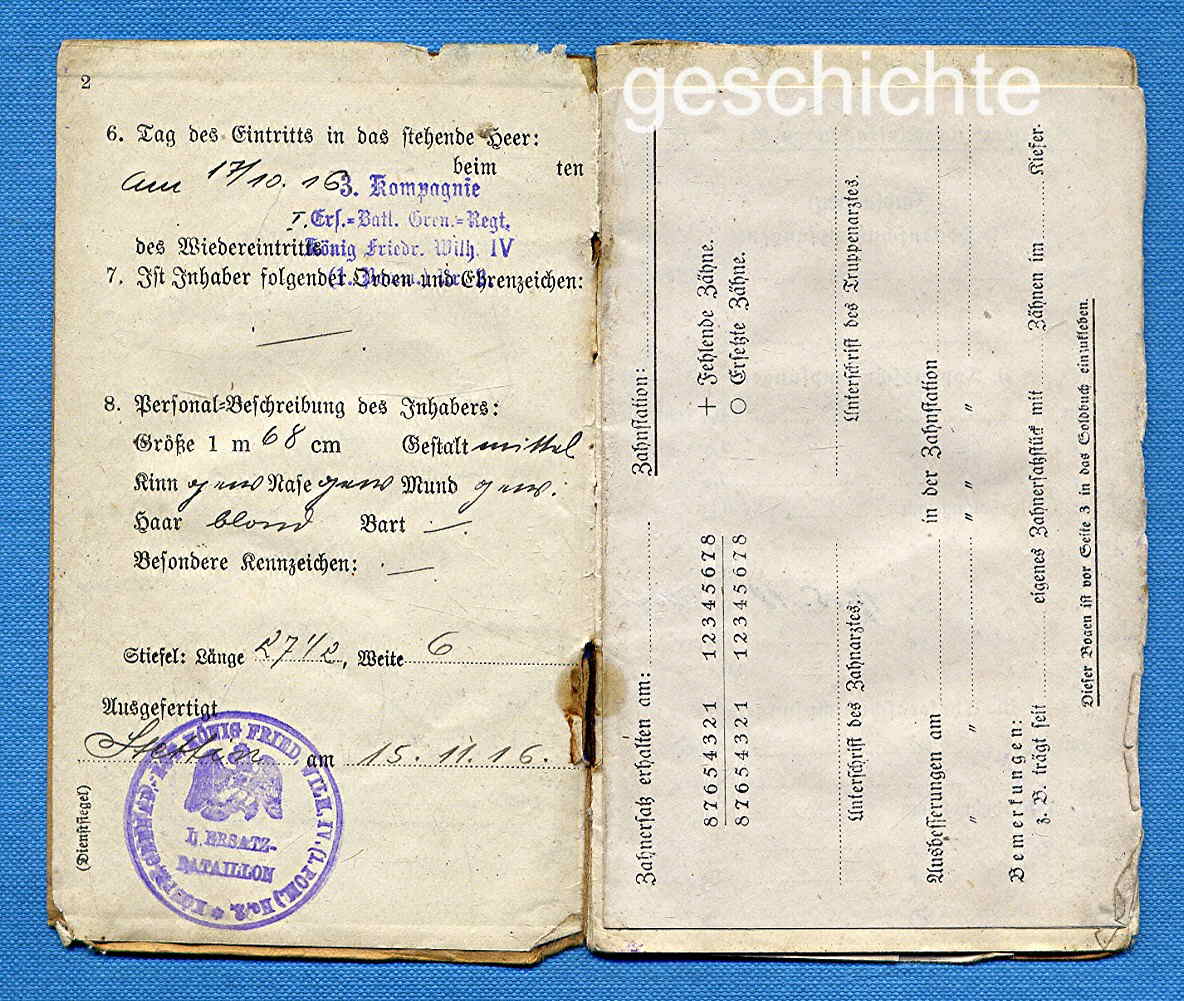 geschichte
2
6. Tag des Eintritts in das stehende Heer:
beim ten
Am 17/10. 16
3. Kompagnie
I. Ers.=Batl. Gren.=Regt.
des Wiedereintritts
König Friedr. Wilh. IV
7. Ist Inhaber folgender Orden und Ehrenzeichen:
—
8. Personal=Beschreibung des Inhabers:
Größe 1 m 68 cm Gestalt mittel
Kinn gew Nase gew Mund gew.
Haar blond Bart —
Besondere Kennzeichen: —
Stiefel: Länge 27 1/2, Weite 6
Ausgefertigt
Stettin am 15. 11. 16.
(Dienstsiegel)
KÖNIG FRIED. WILH. IV. (1. POM.) No 2.
I. ERSATZ-
BATAILLON
Zahnersatz erhalten am: Zahnstation:
8 7 6 5 4 3 2 1 1 2 3 4 5 6 7 8 + Fehlende Zähne.
8 7 6 5 4 3 2 1 1 2 3 4 5 6 7 8 ○ Ersetzte Zähne.
Unterschrift des Zahnarztes. Unterschrift des Truppenarztes.
Ausbesserungen am in der Zahnstation
" " " " "
Bemerkungen:
z. B. trägt seit eigenes Zahnersatzstück mit Zähnen im Kiefer.
Dieser Bogen ist vor Seite 3 in das Soldbuch einzukleben.